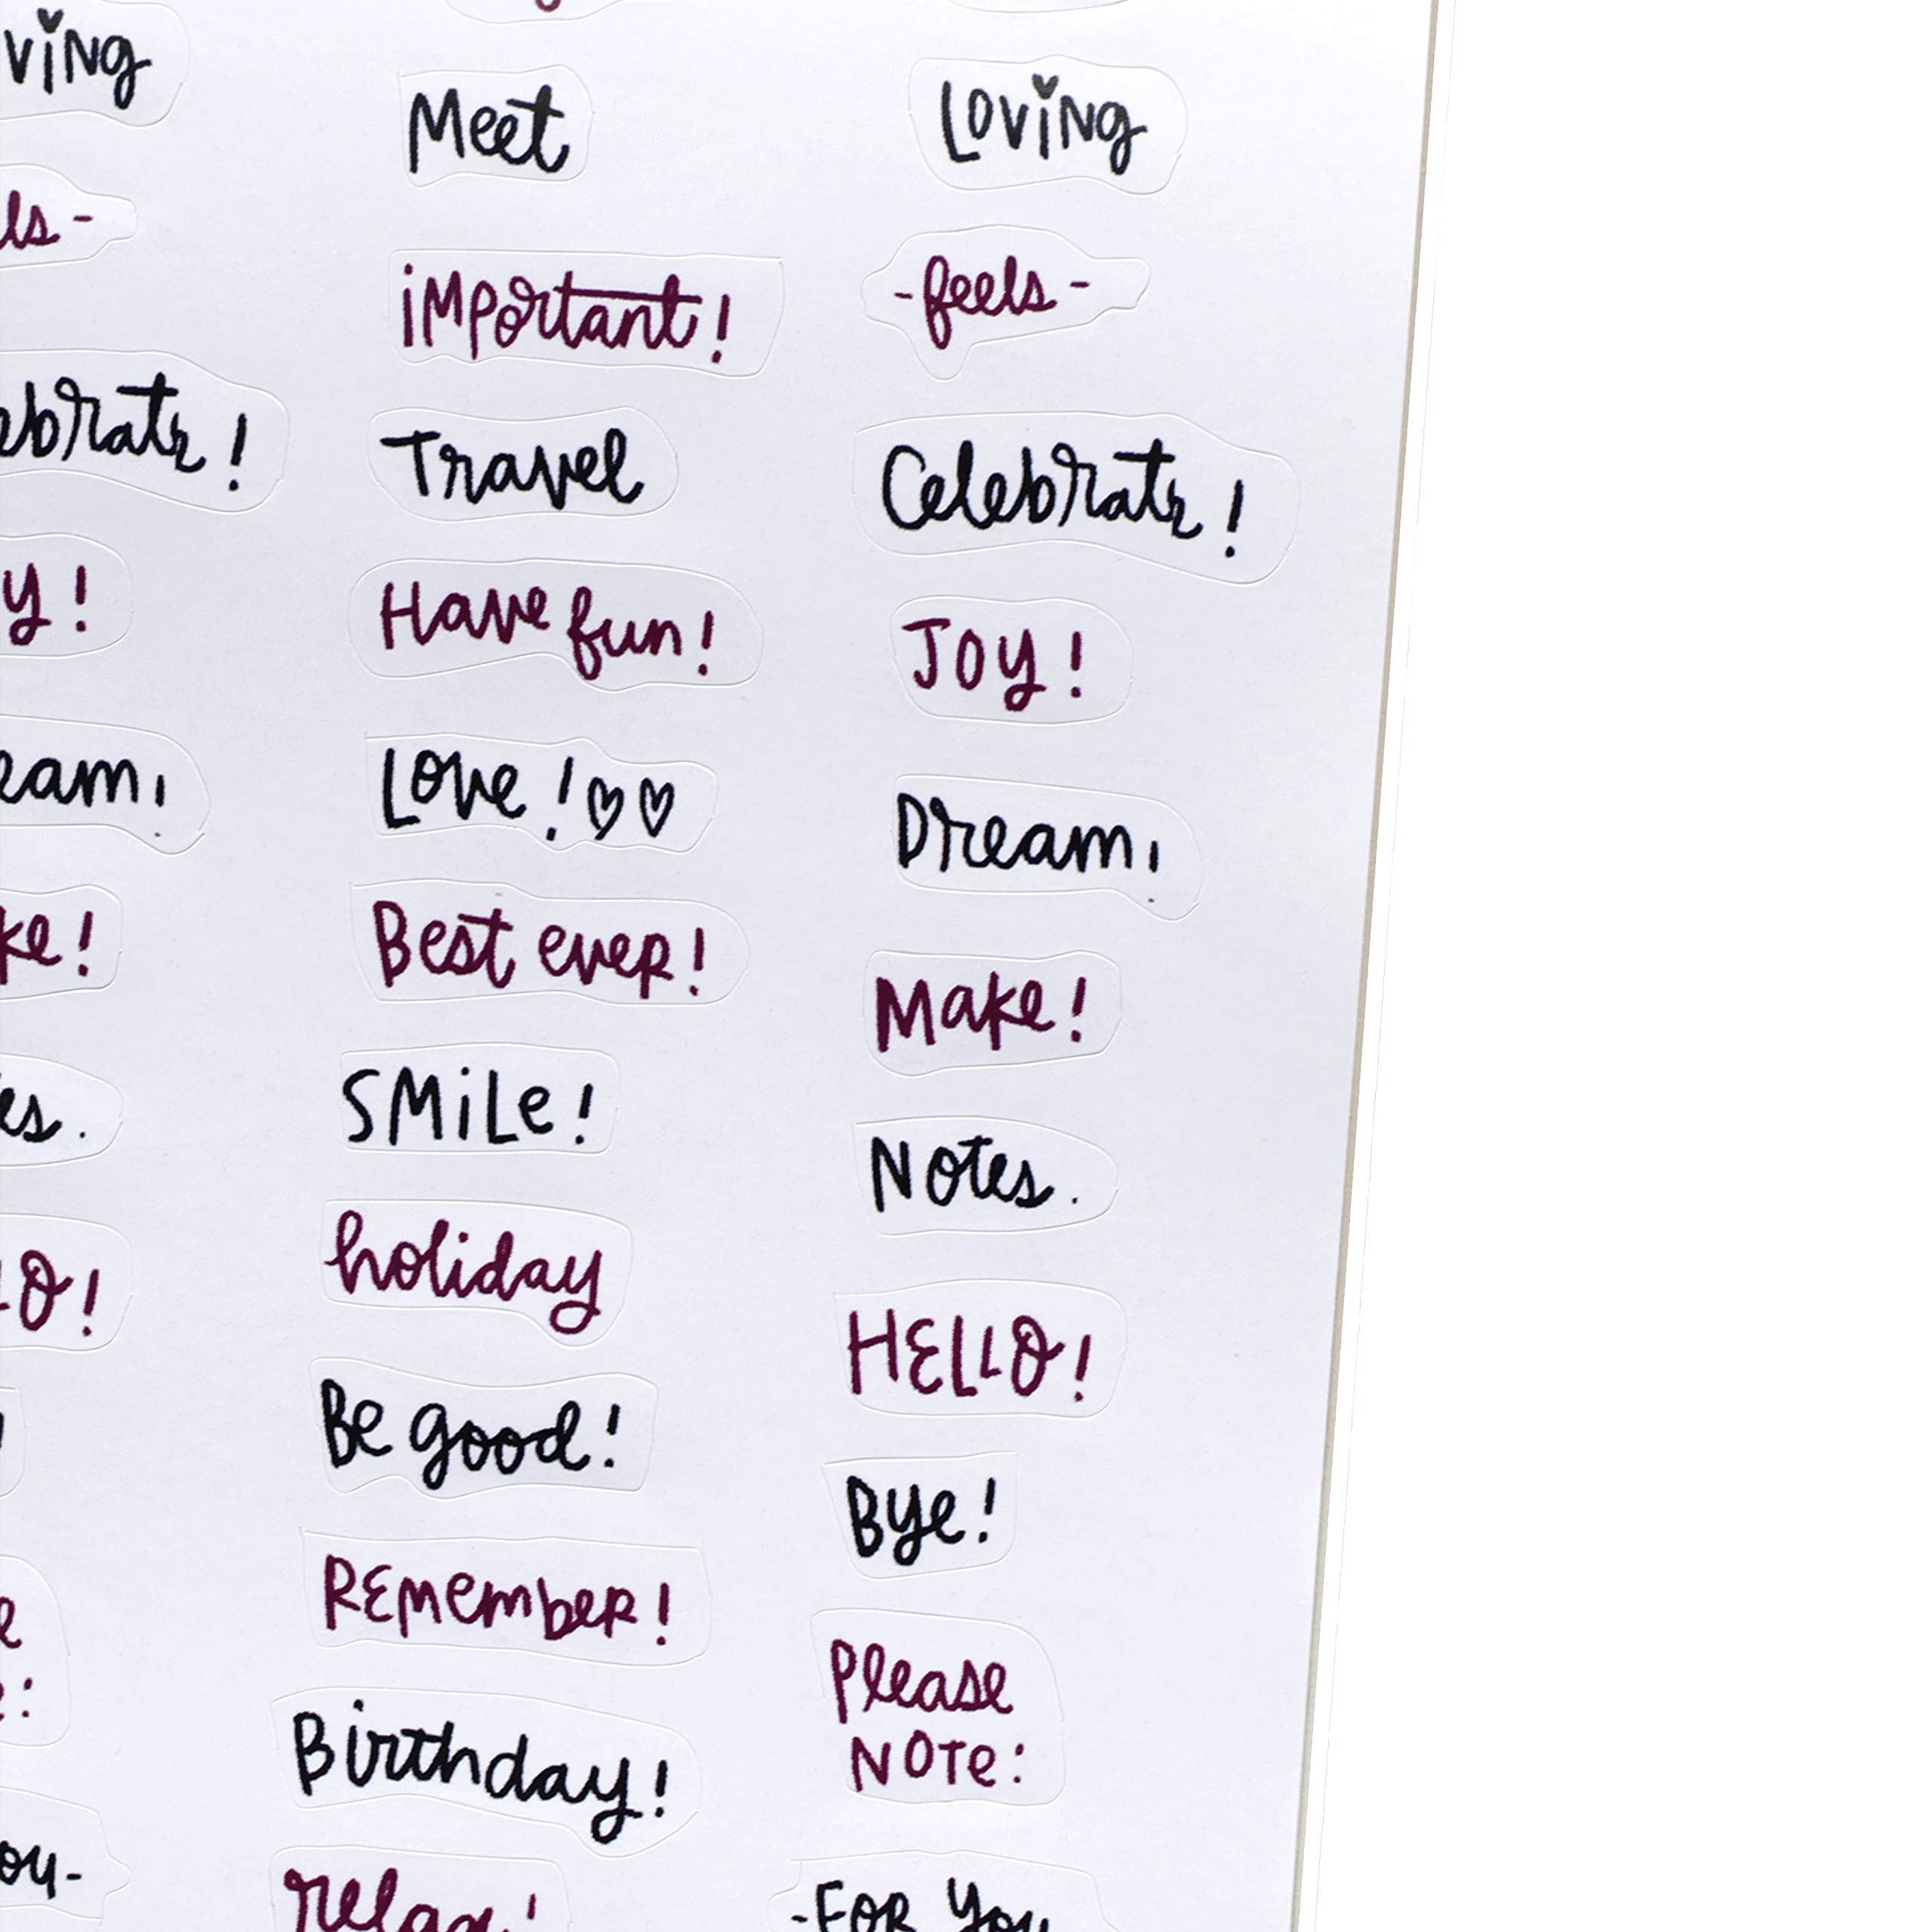 ving
ls -
ebrate!
y!
eam!
ke!
es.
LO!
e
e:
ou-
Meet
important!
Travel
Have fun!
Love!♡♡
Best ever!
SMiLe!
holiday
Be good!
REMember!
Birthday!
relax!
Loving
- feels -
Celebrate!
JOY!
Dream!
Make!
Notes.
HELLO!
Bye!
Please
NOTe:
-FOR You